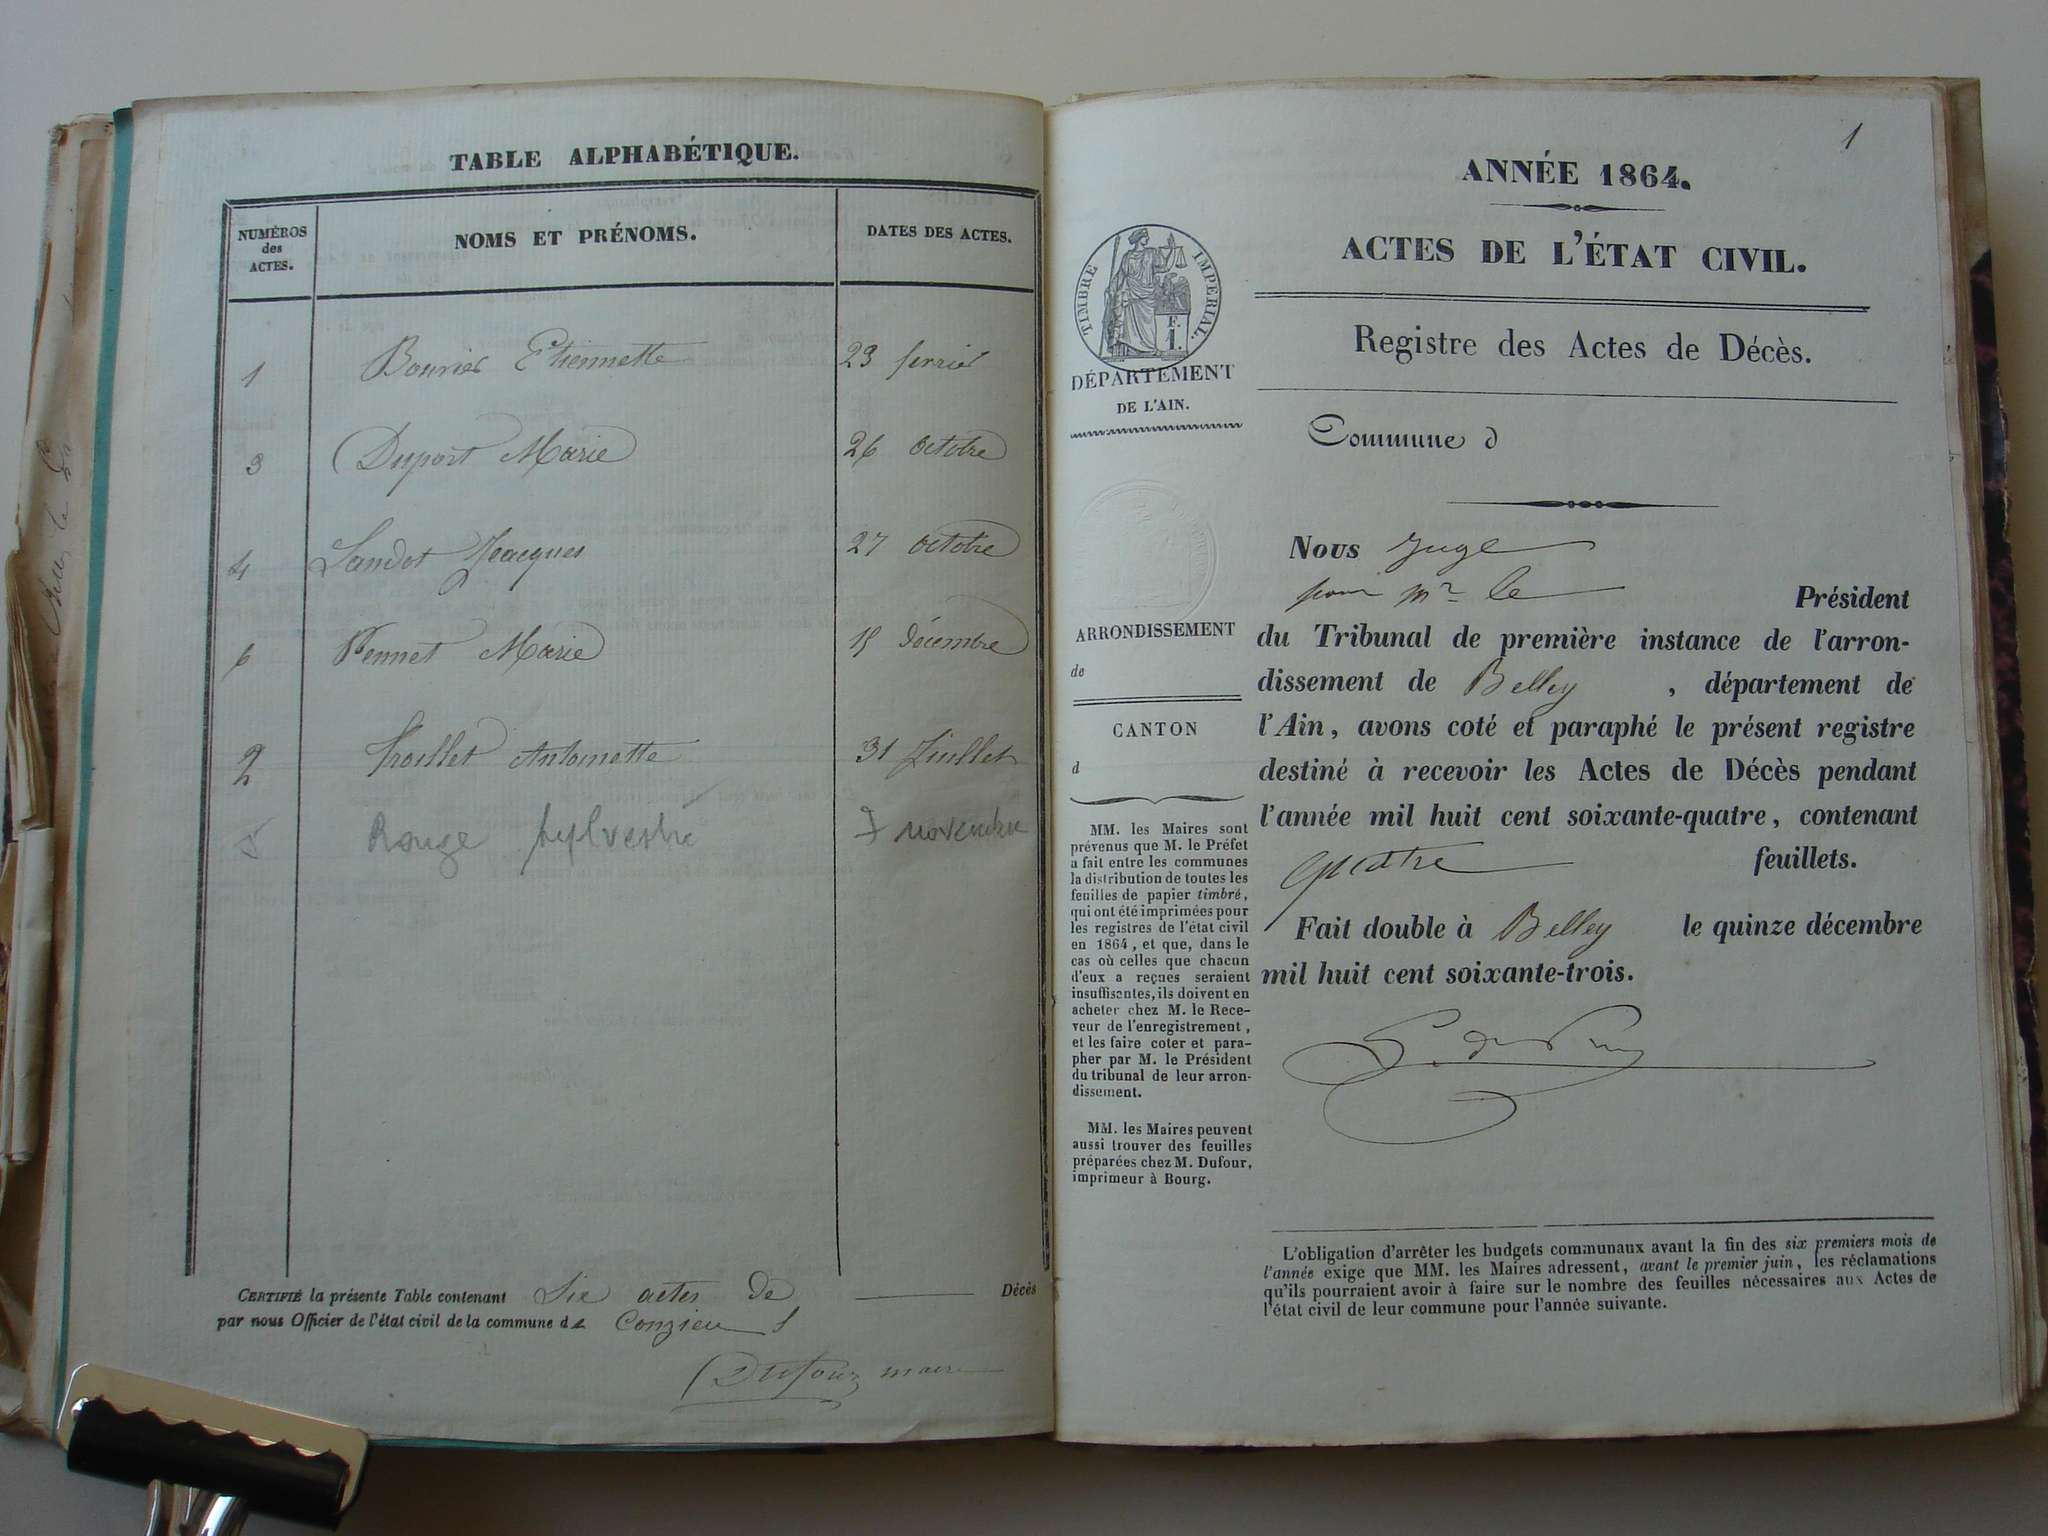 TABLE ALPHABÉTIQUE.
NUMÉROS des ACTES.
NOMS ET PRÉNOMS.
DATES DES ACTES.
1 Bouvier Etiennette 23 fevrier
3 Duport Marie 26 octobre
4 Landot Jacques 27 octobre
6 Pennet Marie 15 décembre
2 Troillet Antoinette 31 Juillet
5 Rouge Sylvestre 7 novembre
CERTIFIÉ la présente Table contenant Six actes de Décès
par nous Officier de l'état civil de la commune de Conzieu
Dufour maire
1
ANNÉE 1864.
ACTES DE L'ÉTAT CIVIL.
Registre des Actes de Décès.
TIMBRE IMPERIAL.
F.
1.
DÉPARTEMENT
DE L'AIN.
Commune d
ARRONDISSEMENT
de
CANTON
d
MM. les Maires sont
prévenus que M. le Préfet
a fait entre les communes
la distribution de toutes les
feuilles de papier timbré,
qui ont été imprimées pour
les registres de l'état civil
en 1864, et que, dans le
cas où celles que chacun
d'eux a reçues seraient
insuffisantes, ils doivent en
acheter chez M. le Rece-
veur de l'enregistrement,
et les faire coter et para-
pher par M. le Président
du tribunal de leur arron-
dissement.
MM. les Maires peuvent
aussi trouver des feuilles
préparées chez M. Dufour,
imprimeur à Bourg.
Nous Juge
pour Mr le Président
du Tribunal de première instance de l'arron-
dissement de Belley, département de
l'Ain, avons coté et paraphé le présent registre
destiné à recevoir les Actes de Décès pendant
l'année mil huit cent soixante-quatre, contenant
quatre feuillets.
Fait double à Belley le quinze décembre
mil huit cent soixante-trois.
L'obligation d'arrêter les budgets communaux avant la fin des six premiers mois de
l'année exige que MM. les Maires adressent, avant le premier juin, les réclamations
qu'ils pourraient avoir à faire sur le nombre des feuilles nécessaires aux Actes de
l'état civil de leur commune pour l'année suivante.